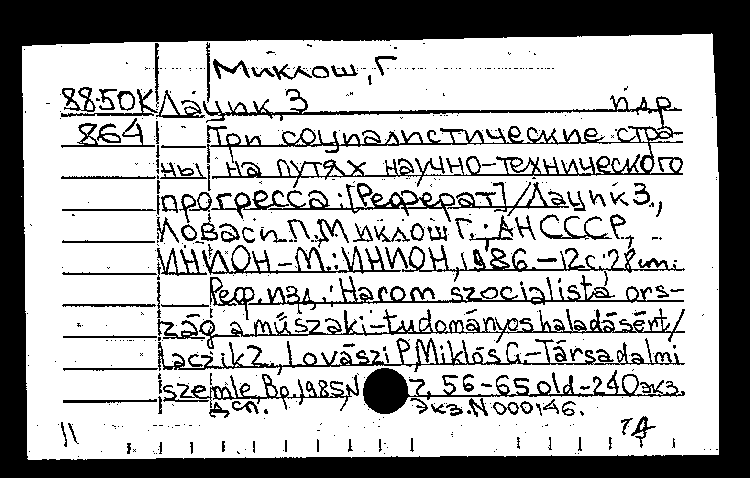 Миклош, Г
88-50К Лацик, З и др
864 Три социалистические стра-
ны на путях научно-технического
прогресса: [Реферат] / Лацик З.,
Ловаси П. Миклош Г.; АН СССР,
ИНИОН - М.: ИНИОН, 1986. - 12 с; 28 cm.
Реф. изд.: Harom szocialista ors-
zág a műszaki-tudományos haladásért /
Laczik Z., Lovászi P, Miklós G. - Társadalmi
szemle, Bp., 1985, N 7, 56-65 old - 240 экз.
дсп. Экз. N 000146.
11